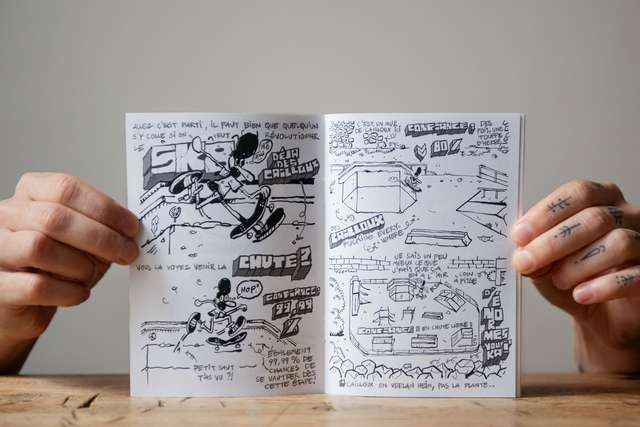 ALLEZ C'EST PARTI, IL FAUT BIEN QUE QUELQU'UN
S'Y COLLE SI ON VEUT RÉVOLUTIONNER
LE
DÉJÀ
DES
CAILLOUX
VOUS LA VOYEZ VENIR LA CHUTE?
HOP!
CONFIANCE:
99,99
%
PETIT SAUT
T'AS VU ?!
ÉGALEMENT
99,99 % DE
CHANCES DE
SE VAUTRER DÈS
CETTE ÉTAPE!
C'EST UN MUR
DE CAILLOUX ICI
CONFIANCE:
80 %
DES
FOIS, UNE
TOUFFE
D'HERBE
CAILLOUX
FUCKING EVERY-
WHERE
JE SAIS UN PEU
MIEUX CE QUE
J'FAIS QUE ÇA
EN A L'AIR
CONFIANCE EN CHUTE LIBRE
CAILLOUX EN VERLAN HEIN, PAS LA PLANTE...